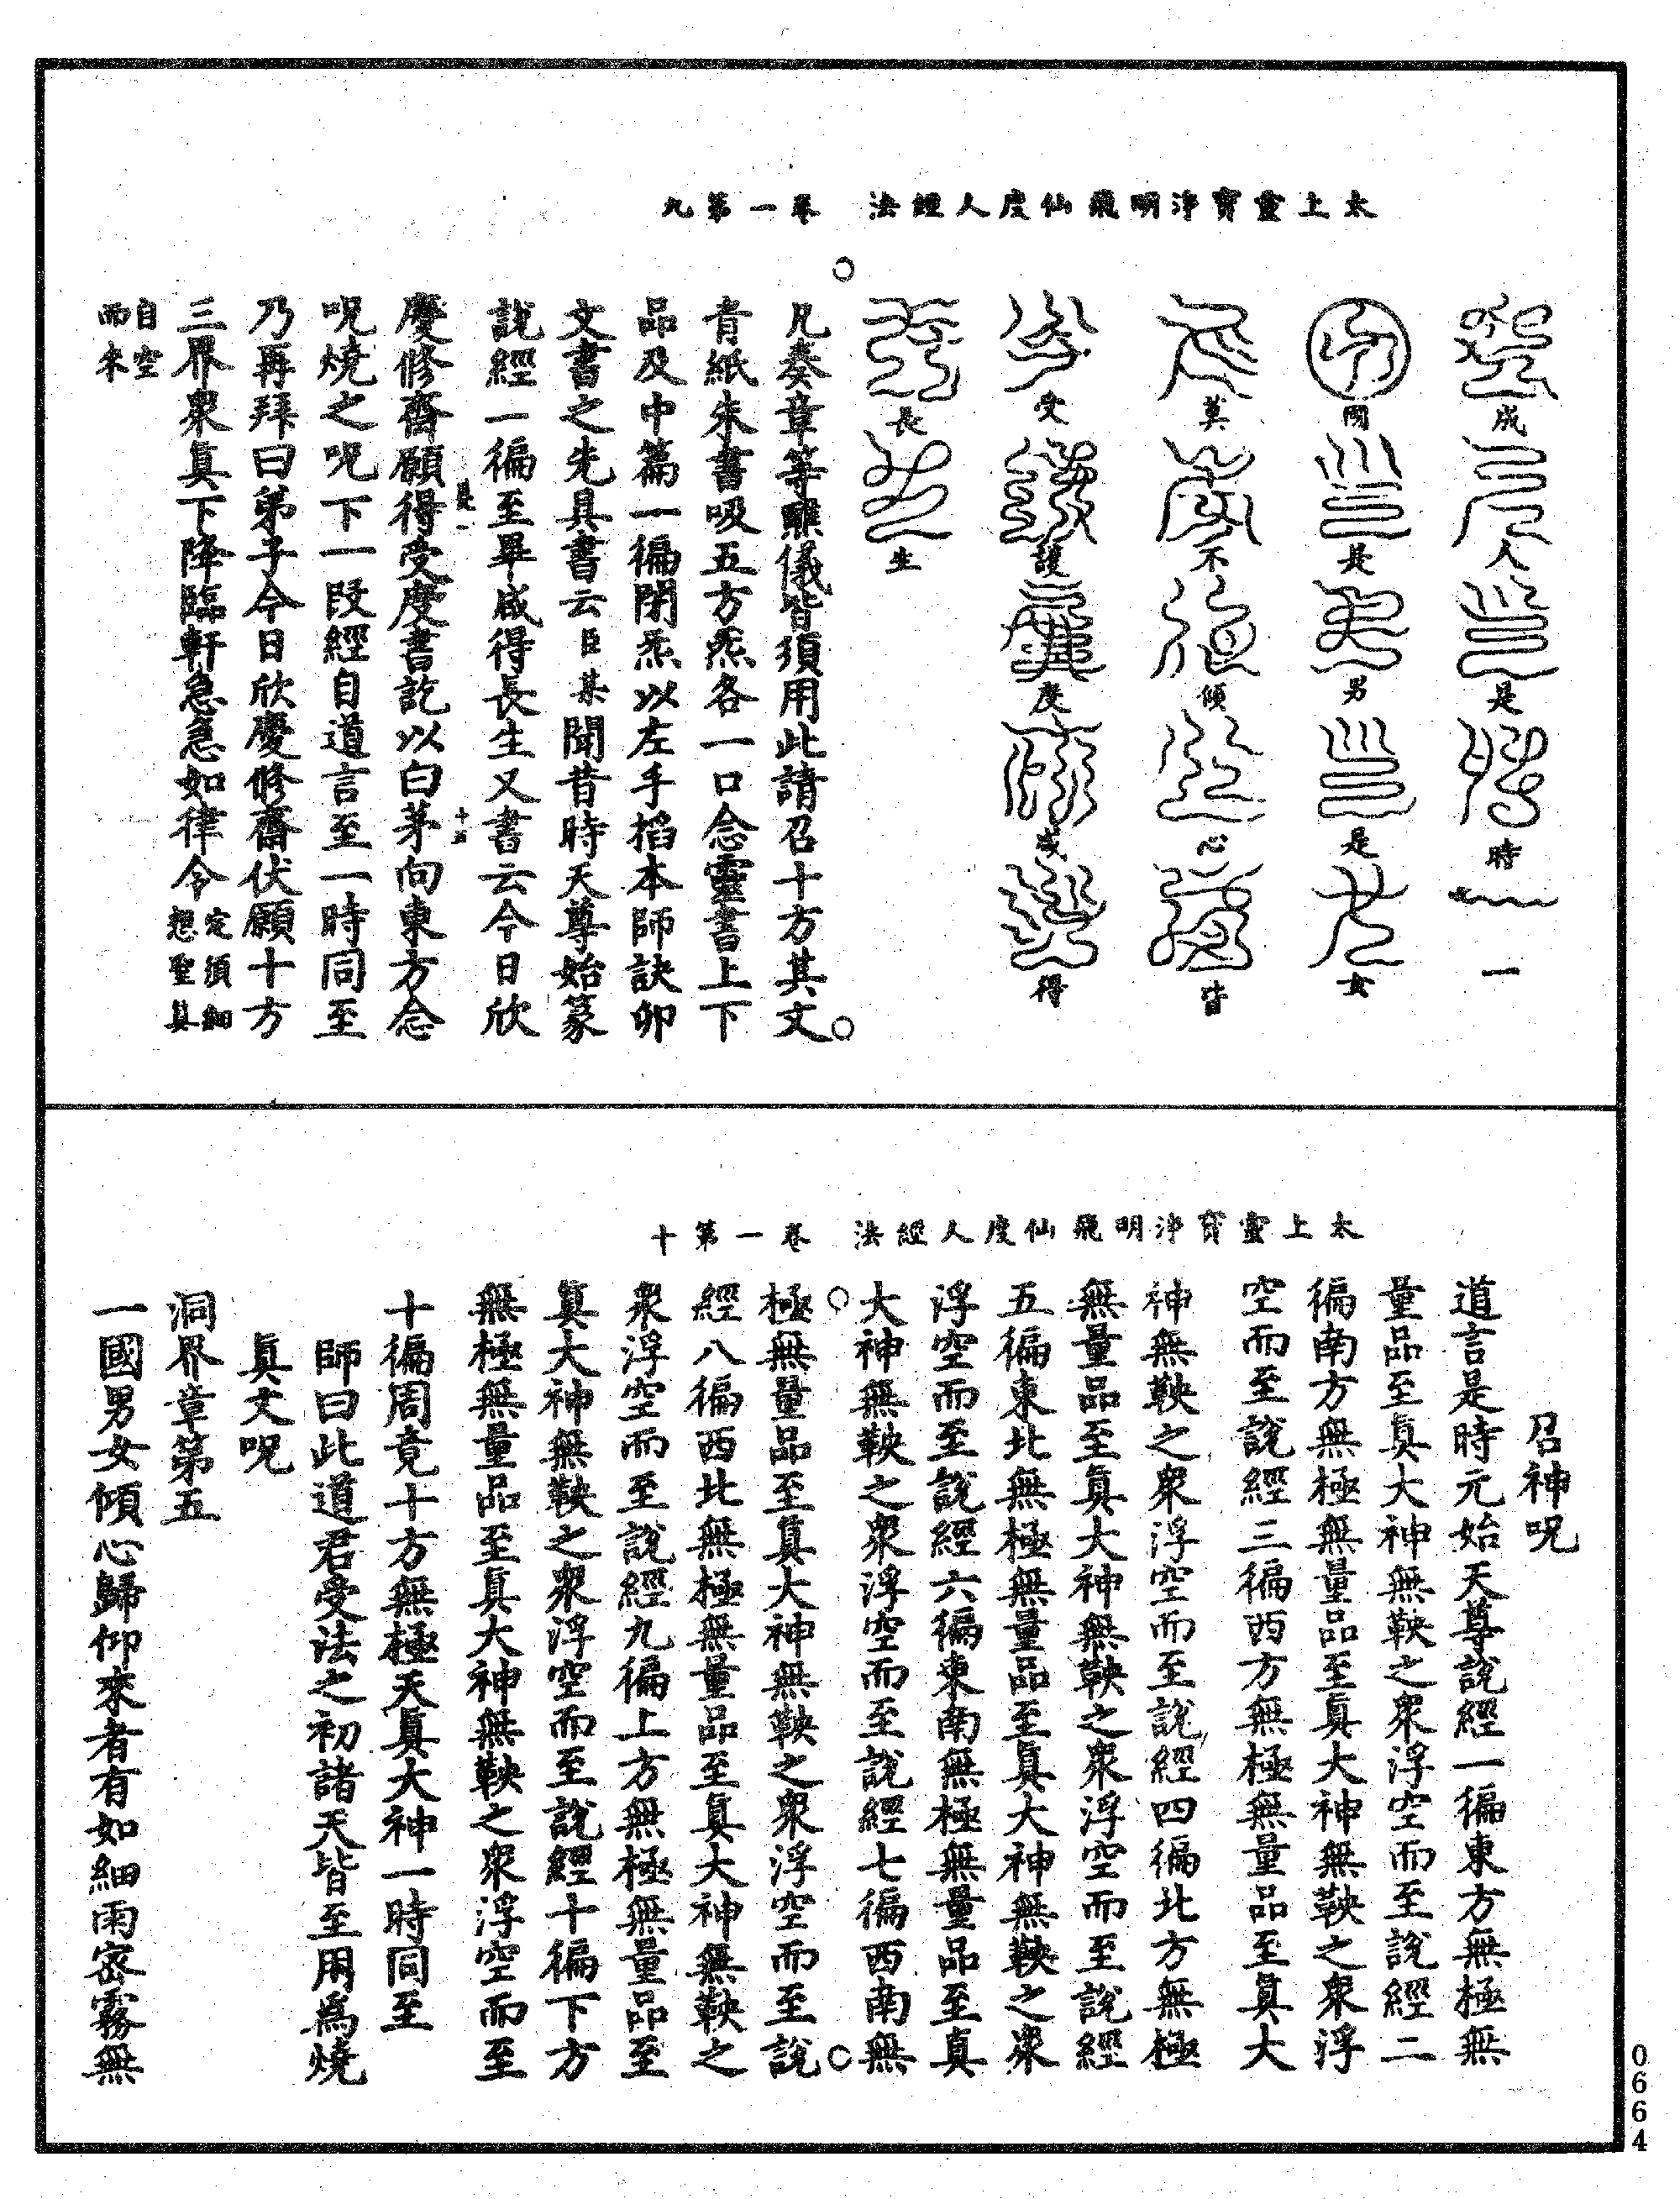 太上靈寶淨明飛仙度人經法　卷一第九
成人是時一
國是男是女
莫不傾心皆
受護度咸得
長生
凡奏章等醮儀皆須用此請召十方其文
青紙朱書吸五方炁各一口念靈書上下
品及中篇一徧閉炁以左手掐本師訣卯
文書之先具書云臣某聞昔時天尊始篆
說經一徧至畢咸得長生又書云今日欣
慶修齋願得受度書訖以白茅向東方念
呪燒之呪下一段經自道言至一時同至
乃再拜曰弟子今日欣慶修齋伏願十方
三界衆真下降臨軒急急如律令定須細想聖真
自空而來
太上靈寶淨明飛仙度人經法　卷一第十
召神呪
道言是時元始天尊說經一徧東方無極無
量品至真大神無鞅之衆浮空而至說經二
徧南方無極無量品至真大神無鞅之衆浮
空而至說經三徧西方無極無量品至真大
神無鞅之衆浮空而至說經四徧北方無極
無量品至真大神無鞅之衆浮空而至說經
五徧東北無極無量品至真大神無鞅之衆
浮空而至說經六徧東南無極無量品至真
大神無鞅之衆浮空而至說經七徧西南無
極無量品至真大神無鞅之衆浮空而至說
經八徧西北無極無量品至真大神無鞅之
衆浮空而至說經九徧上方無極無量品至
真大神無鞅之衆浮空而至說經十徧下方
無極無量品至真大神無鞅之衆浮空而至
十徧周竟十方無極天真大神一時同至
師曰此道君受法之初諸天皆至用爲燒
真文呪
洞界章第五
一國男女傾心歸仰來者有如細雨密霧無
0664